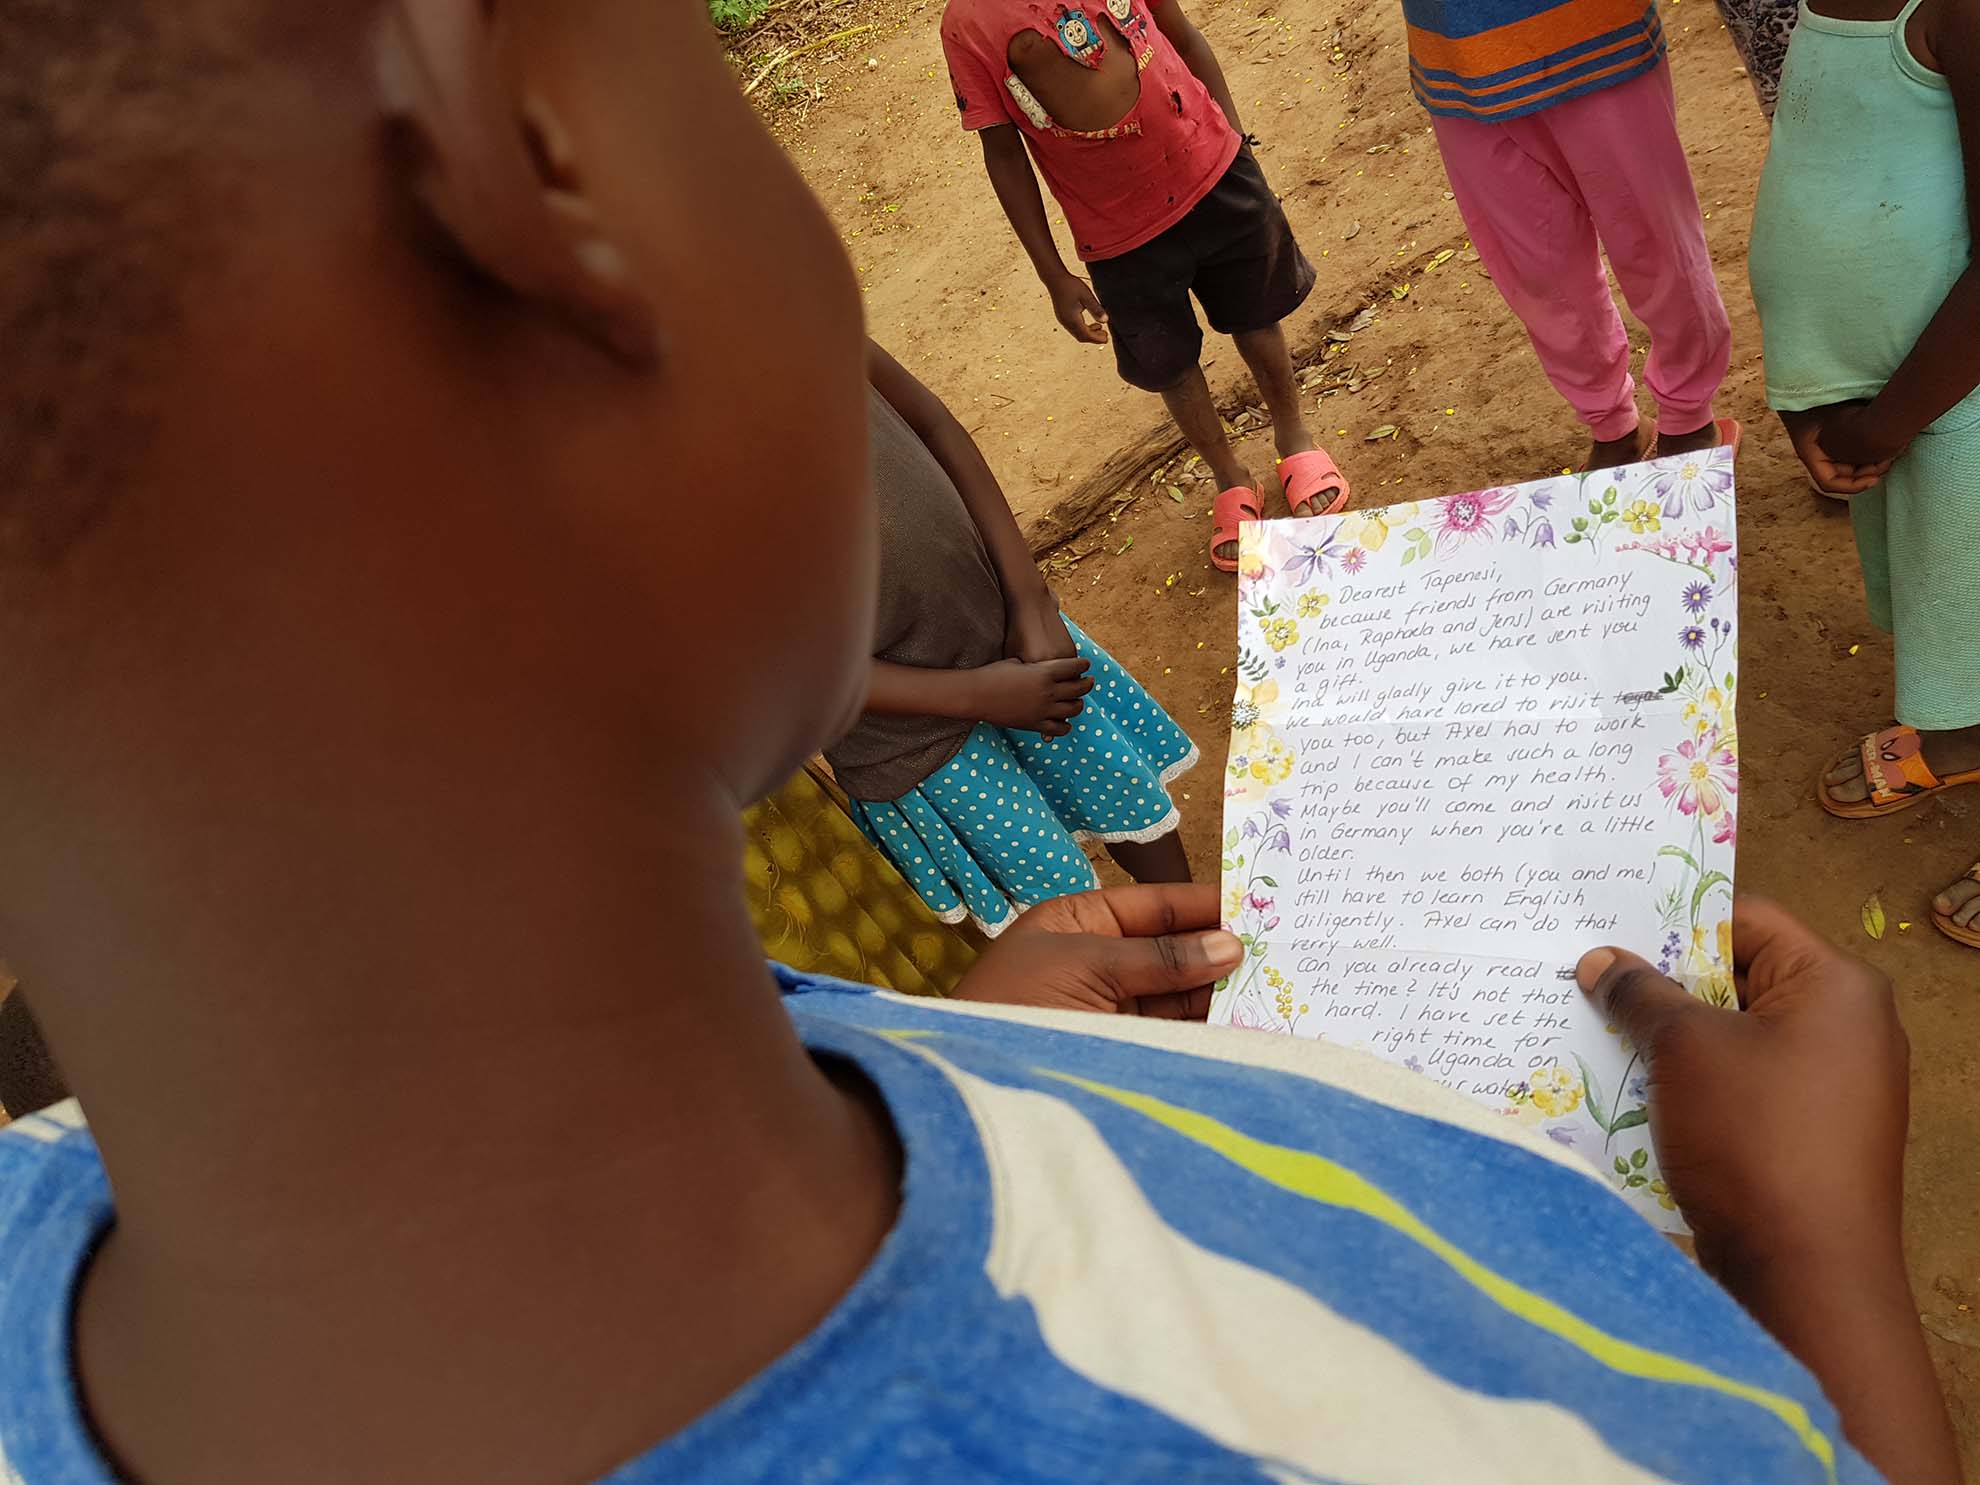 Dearest Tapenesi,
because friends from Germany
(Ina, Raphaela and Jens) are visiting
you in Uganda, we have sent you
a gift.
Ina will gladly give it to you.
We would have loved to visit
you too, but Axel has to work
and I can't make such a long
trip because of my health.
Maybe you'll come and visit us
in Germany when you're a little
older.
Until then we both (you and me)
still have to learn English
diligently. Axel can do that
very well.
Can you already read
the time? It's not that
hard. I have set the
right time for
Uganda on
watch.